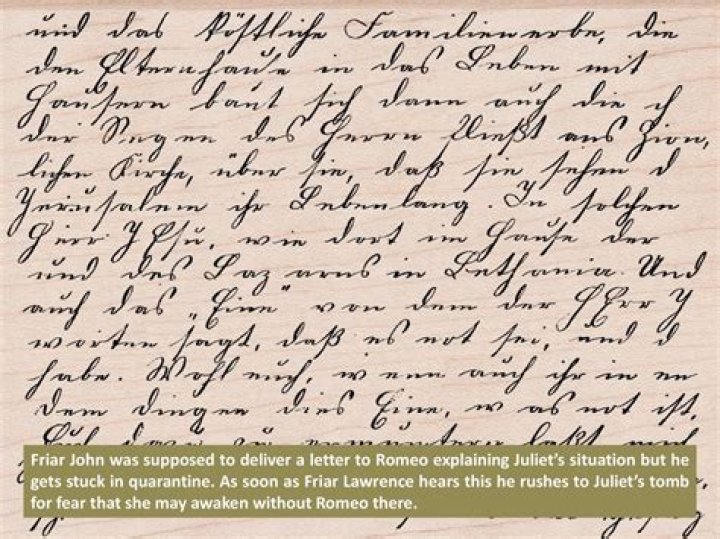 und das köstliche Familienerbe, die
den Elternhause in das Leben mit
Hausern baut sich dann auch die
der Segen des Herrn fließt aus Zion,
lichen Kirche, über sie, daß sie sehen d
Jerusalem ihr Lebenlang. In solchen
Herr JEsu, wie dort im Hause der
und des Lazarus in Bethania. Und
auch das „Eine“ von dem der HErr J
worten sagt, daß es not sei, und d
habe. Wohl euch, wenn auch ihr in en
dem dingen dies Eine, was not ist,
Friar John was supposed to deliver a letter to Romeo explaining Juliet’s situation but he
gets stuck in quarantine. As soon as Friar Lawrence hears this he rushes to Juliet’s tomb
for fear that she may awaken without Romeo there.